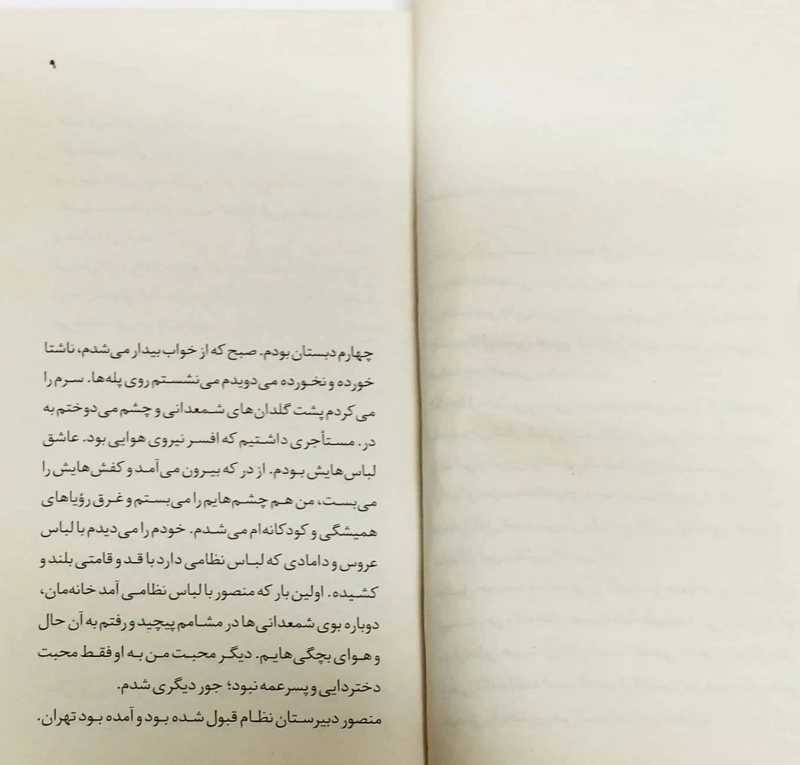 ۹
چهارم دبستان بودم. صبح که از خواب بیدار می‌شدم، ناشتا
خورده و نخورده می‌دویدم می‌نشستم روی پله‌ها. سرم را
می‌کردم پشت گلدان‌های شمعدانی و چشم می‌دوختم به
در. مستأجری داشتیم که افسر نیروی هوایی بود. عاشق
لباس‌هایش بودم. از در که بیرون می‌آمد و کفش‌هایش را
می‌بست، من هم چشم‌هایم را می‌بستم و غرق رؤیاهای
همیشگی و کودکانه‌ام می‌شدم. خودم را می‌دیدم با لباس
عروس و دامادی که لباس نظامی دارد با قد و قامتی بلند و
کشیده. اولین بار که منصور با لباس نظامی آمد خانه‌مان،
دوباره بوی شمعدانی‌ها در مشامم پیچید و رفتم به آن حال
و هوای بچگی‌هایم. دیگر محبت من به او فقط محبت
دختردایی و پسرعمه نبود؛ جور دیگری شدم.
منصور دبیرستان نظام قبول شده بود و آمده بود تهران.